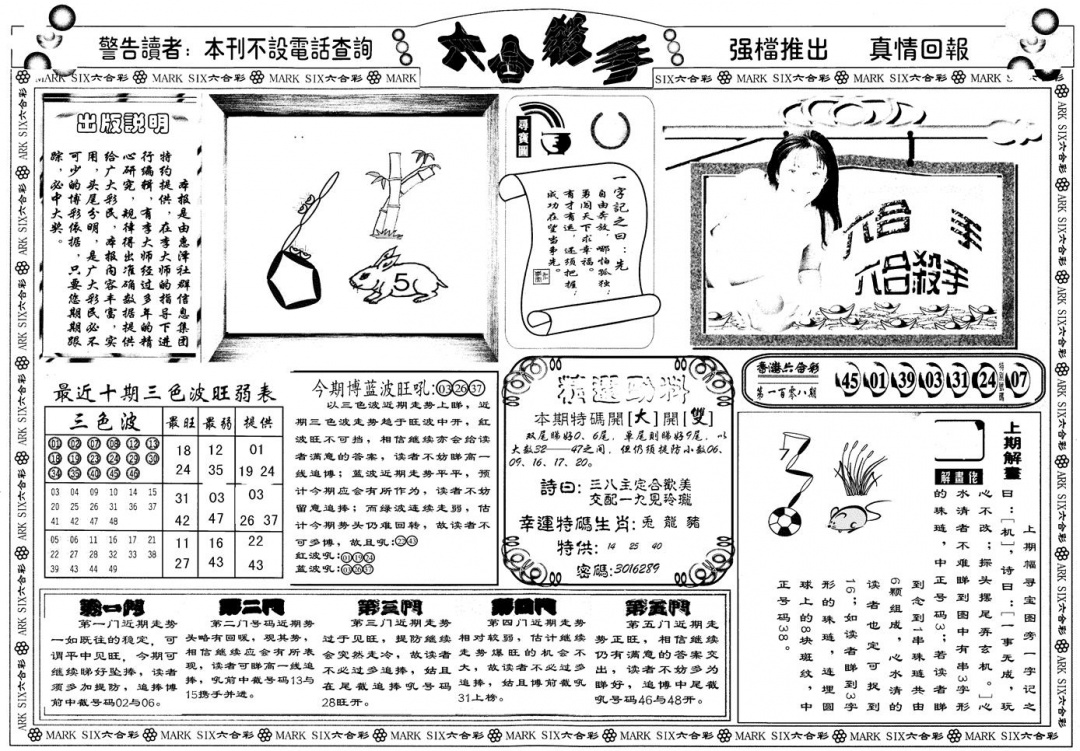 警告讀者：本刊不設電話查詢
六合殺手
强檔推出 真情回報
MARK SIX六合彩 MARK SIX六合彩 MARK SIX六合彩 MARK SIX六合彩 MARK
SIX六合彩 MARK SIX六合彩 MARK SIX六合彩 MARK SIX六合彩 MARK
出版説明
本报是由惠泽社群信息集团
特约提供，在李大师的指导下进
行编辑，有李大师经过多年的精
心研究，规律得出准确数据提供
给广大彩民，本报内容丰富，实
用，头尾分明，是广大彩民必不
可少的博彩依据，只要您期期跟
踪，必中大奖。
5
尋寶圖
一字記之曰：先
自由奔放，哪怕孤独；
勇闯天下求幸福。
有才有运，还须把握；
成功在望当争先。
六合 手
六合殺手
香港六合彩
第一百零八期
45 01 39 03 31 24 特别號碼 07
最近十期三色波旺弱表
三色波 最旺 最弱 提供
01 02 07 08 12 13
18 19 23 24 29 30
34 35 40 45 46
18 12 01
24 35 19 24
03 04 09 10 14 15
20 25 26 31 36 37
41 42 47 48
31 03 03
42 47 26 37
05 06 11 16 17 21
22 27 28 32 33 38
39 43 44 49
11 16 22
27 43 43
今期博蓝波旺吼：03 26 37
以三色波近期走势上睇，近
期三色波走势趋于旺波中开，红
波旺不可挡，相信继续亦会给读
者满意的答案，读者不妨睇高一
线追博；蓝波近期走势平平，预
计今期应会有所作为，读者不妨
留意追捧；而绿波连续走弱，估
计今期势头仍难回转，故读者不
可多博，故且吼：22 43
紅波吼：01 19 24
蓝波吼：03 26 37
精選勁料
本期特碼開[大]開[雙]
双尾睇好0、6尾，单尾则睇好9尾，以
大数32——47之间，但仍须提防小数06、
09、16、17、20。
詩曰：三八主定合歡美
交配一九見玲瓏
幸運特碼生肖：兎 龍 豬
特供：14 25 40
密碼：3016289
上期解畫
解畫佬
上期幅寻宝图旁一字记之
曰：[机]，诗曰：[一事无成，玩
心不改；探头摆尾弄玄机。]心
水清者不难睇到图中有串3字形
的珠琏，中正号码3；若读者睇
到念到1串珠琏共由
6颗组成，心水清的
读者也定可捉到
16；如读者睇到3字
形的珠琏，连埋圆
球上的8块斑纹，中
正号码38。
第一門
第一门近期走势
一如既往的稳定，可
谓平中见旺，今期可
继续睇好坠捧，读者
须多加提防，追捧博
前中截号码02与06。
第二門
第二门号码近期势
头略有回暖，观其势，
相信继续应会有所表
现，读者可睇高一线追
捧，吼前中截号码13与
15携手并进。
第三門
第三门近期走势
过于见旺，提防继续
会突然走冷，故读者
不必过多追捧，姑且
在尾截追捧吼号码
28旺开。
第四門
第四门近期走势
相对较弱，估计继续
走势爆旺的机会不
大，故读者不必过多
追捧，姑且博前截吼
31上榜。
第五門
第五门近期走
势正旺，相信继续
仍有满意的答案交
出，读者不妨多为
睇好，追博中尾截
吼号码46与48开。
MARK SIX六合彩 MARK SIX六合彩 MARK SIX六合彩 MARK SIX六合彩 MARK SIX六合彩 MARK SIX六合彩 MARK SIX六合彩 MARK SIX六合彩 MARK SIX六合彩